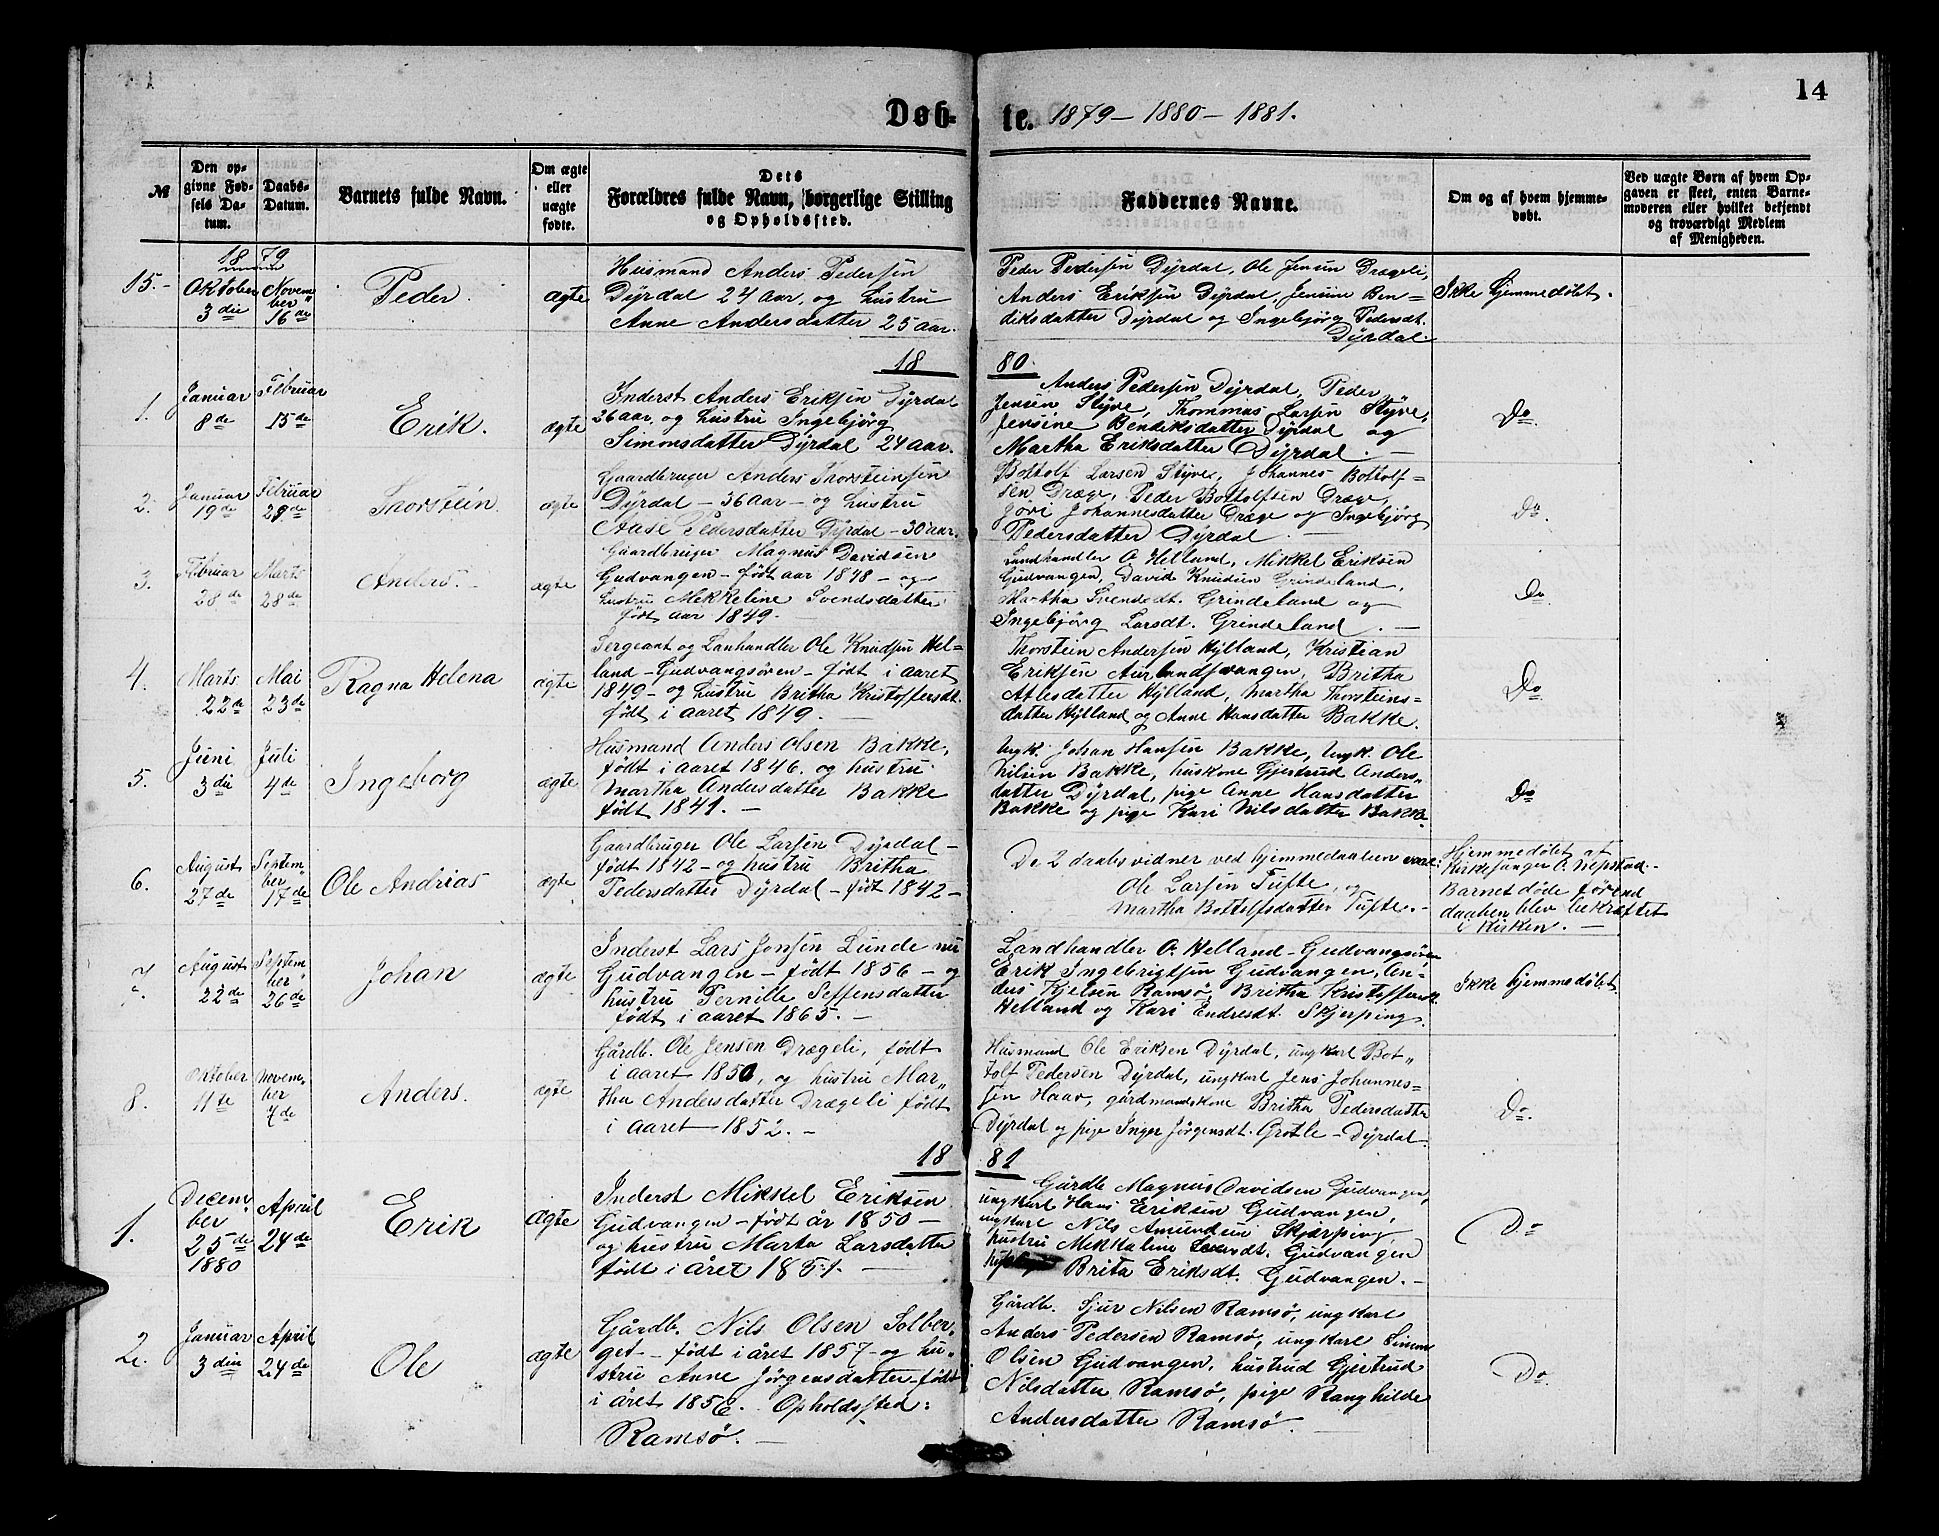 14
Døb-
te. 1879 - 1880 - 1881.
№
Den op-
givne Fød-
sels Da-
tum.
Daabs-
Datum.
Barnets fulde Navn.
Om ægte
eller
uægte
fødte.
Dets
Forældres fulde Navn, borgerlige Stilling
og Opholdssted.
Faddernes Navne.
Om og af hvem hjemme-
døbt.
Ved uægte Børn af hvem Op-
gaven er skeet, enten Barne-
moderen eller hvilket bekjendt
og troværdigt Medlem
af Menigheden.
1879
15.-
Oktober
3 die
Novem
ber
16 de
Peder.
ægte
Husmand Anders Pedersen
Dyrdal 24 aar, og hustru
Anne Andersdatter 25 aar.
Peder Pedersen Dyrdal, Ole Jensen Drægeli,
Anders Eriksen Dyrdal, Jensine Ben-
diksdatter Dyrdal og Ingebjørg Pedersdt.
Dyrdal.
Ikke hjemmedøbt.
18
80.
1.
Januar
8 de
Februar
15 de
Erik.
ægte
Inderst Anders Eriksen Dyrdal
26 aar, og hustru Ingebjørg
Simonsdatter Dyrdal 24 aar.
Anders Pedersen Dyrdal, Peder
Jensen Styve, Thommas Larsen Styve,
Jensine Bendiksdatter Dyrdal og
Martha Eriksdatter Dyrdal. -
Do
2.
Januar
19 de
Februar
29 de
Thorstein.
ægte
Gaardbruger Anders Thorsteinsen
Dyrdal - 36 aar - og hustru
Aase Pedersdatter Dyrdal - 30 aar.
Bottolf Larsen Styve, Johannes Bottolf-
sen Dræge, Peder Bottolfsen Dræge,
Jøri Johannesdatter Dræge og Ingebjørg
Pedersdatter Dyrdal. -
Do.
3.
Februar
28 de
Marts
28 de
Anders.
ægte
Gaardbruger Magnus Davidsen
Gudvangen - født aar 1848 - og
hustru Mekkeline Svendsdatter
født aar 1849. -
Landhandler O. Helland, Mikkel Eriksen
Gudvangen, David Knudsen Grindeland,
Martha Svensdt. Grindeland og
Ingebjørg Larsdt. Grindeland. -
Do.
4.
Marts
22 de
Mai
23 de
Ragna Helena
ægte
Sergeant og Lanhandler Ole Knudsen Hel-
land - Gudvangsøren - født i aaret
1849 - og hustru Britha Kristoffersdt.
født i aaret 1849. -
Thorstein Andersen Hylland, Kristian
Eriksen Aurlandsvangen, Britha
Atlesdatter Hylland, Martha Thorsteins-
datter Hylland og Anne Hansdatter Bakke.
Do
5.
Juni
3 die
Juli
4 de
Ingeborg
ægte
Husmand Anders Olsen Bakke,
født i aaret 1846. og hustru
Martha Andersdatter Bakke
født 1841. -
Ungk. Johan Hansen Bakke, Ungk. Ole
Nilsen Bakke, huskone Gjertrud Anders-
datter Dyrdal, pige Anne Hansdatter
Bakke og pige Kari Nilsdatter Bakke.
Do
6.
August
27 de
Septem-
ber
17 de
Ole Andrias
ægte
Gaardbruger Ole Larsen Dyrdal -
født 1842 - og hustru Britha
Pedersdatter Dyrdal - født 1842 -
De 2 daabsvidner ved hjemmedaaben vare:
Ole Larsen Tufte, og
Martha Bottolfsdatter Tufte. -
Hjemmedøbt af
Kirkesanger O. Nepstad.
Barnet døde førend
daaben blev bekræftet
i Kirken. -
7.
August
22 de
Septem
ber
26 de
Johan
ægte
Inderst Lars Jonsen Lunde nu
Gudvangen - født 1856 - og
hustru Pernille Seffensdatter
født i aaret 1865. -
Landhandler O. Helland - Gudvangsøren
Erik Ingebrigtsen Gudvangen, An-
ders Kjelsen Ramsø, Britha Kristoffersdt.
Helland og Kari Endresdt. Skjerping.
Ikke hjemmedøbt.
8.
Oktober
11 te
Novem-
ber
7 de
Anders.
ægte
Gårdb. Ole Jensen Drægeli, født
i aaret 1850, og hustru Mar-
tha Andersdatter Drægeli født
i aaret 1852. -
Husmand Ole Eriksen Dyrdal, ungkarl Bot-
tolf Pedersen Dyrdal, ungkarl Jens Johannes-
sen Haav, gårdmandskone Britha Pedersdatter
Dyrdal og pige Inger Jørgensdt. Grotle - Dyrdal.
Do.
18
81
1.
Decem-
ber
25 de
1880
April
24 de
Erik
ægte
Inderst Mikkel Eriksen
Gudvangen - født år 1850 -
og hustru Marta Larsdatter
født i året 1851. -
Gårdb Magnus Davidsen Gudvangen,
ungkarl Hans Eriksen Gudvangen,
ungkarl Nils Amundsen Skjerping,
hustru Mikkaline Svendt. Gudvangen
Brita Eriksdt. Gudvangen. -
Do
2.
Januar
3 die
April
24 de
Ole
ægte
Gårdb. Nils Olsen Solber-
get - født i året 1857 - og hu-
stru Anne Jørgensdatter - født
i året 1856. Opholdssted:
Ramsø. -
Gårdb. Sjur Nilsen Ramsø, ungkarl
Anders Pedersen Ramsø, ungkarl Simon
Olsen Gudvangen, hustrud Gjertrud
Nilsdatter Ramsø, pige Ranghilde
Andersdatter Ramsø.
Do.